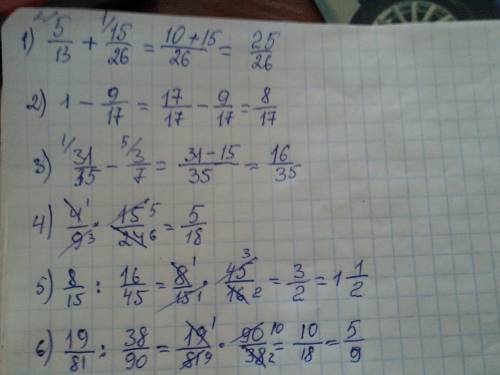 1) 2/ 5/13 + 1/ 15/26 = (10+15)/26 = 25/26
2) 1 - 9/17 = 17/17 - 9/17 = 8/17
3) 1/ 31/35 - 5/ 3/7 = (31-15)/35 = 16/35
4) 4 1/9 3 · 15 5/24 6 = 5/18
5) 8/15 : 16/45 = 8 1/15 1 · 45 3/16 2 = 3/2 = 1 1/2
6) 19/81 : 38/90 = 19 1/81 9 · 90 10/38 2 = 10/18 = 5/9